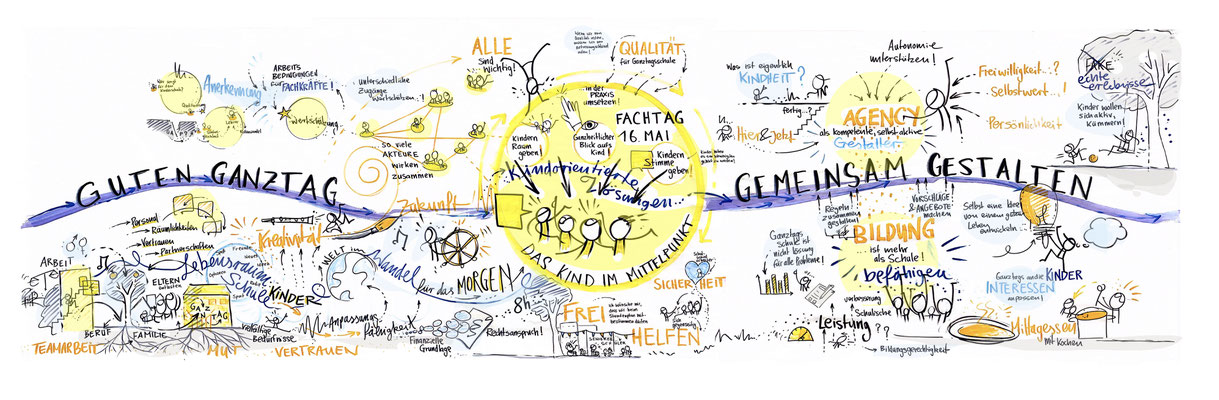 GUTEN GANZTAG
GEMEINSAM GESTALTEN
Anerkennung
ARBEITS
BEDINGUNGEN
für FACHKRÄFTE!
Wertschätzung
unterschiedliche
Zugänge
wertschätzen..!
so viele
AKTEURE
wirken
zusammen
ALLE
sind
wichtig!
QUALITÄT
für Ganztagsschule
in der
PRAXIS
umsetzen!
FACHTAG
16 MAI
Kindern
Raum
geben
Ganzheitlicher
Blick aufs
Kind!
Kindern
Stimme
geben!
Kindorientierte
Lösungen...
DAS KIND IM MITTELPUNKT
Was ist eigentlich
KINDHEIT?
fertig...?
Hier & jetzt
Autonomie
unterstützen!
AGENCY
als kompetente, selbst aktive
Gestalter
Freiwilligkeit...?
Selbstwert...!
Persönlichkeit
FAKE
echte
erlebnisse
Kinder wollen
sich aktiv
kümmern!
Personal
Räumlichkeiten
Vertrauen
Partnerschaften
ARBEIT
ELTERN
BERUF
FAMILIE
Lebensraum
Schule
KINDER
GANZ
TAG
TEAMARBEIT
MUT
VERTRAUEN
Vielfältige
Bedürfnisse
Kreativität
WELT
Anpassungs
fähigkeit
Zukunft
Wandel
für das MORGEN
Finanzielle
Grundlage
Rechtsanspruch!
8h
FREI
HELFEN
SICHERHEIT
Ganztags
Schule ist
nicht Lösung
für alle Probleme!
Regeln
zusammen
gestalten!
VORSCHLÄGE
& ANGEBOTE
machen
BILDUNG
ist mehr
als Schule!
befähigen
verbesserung
Schulische
Leistung??
Bildungsgerechtigkeit
Selbst eine Idee
von einem guten
Leben
entwickeln
Ganztags an die KINDER
INTERESSEN
anpassen!
Mittagessen
mit Kochen